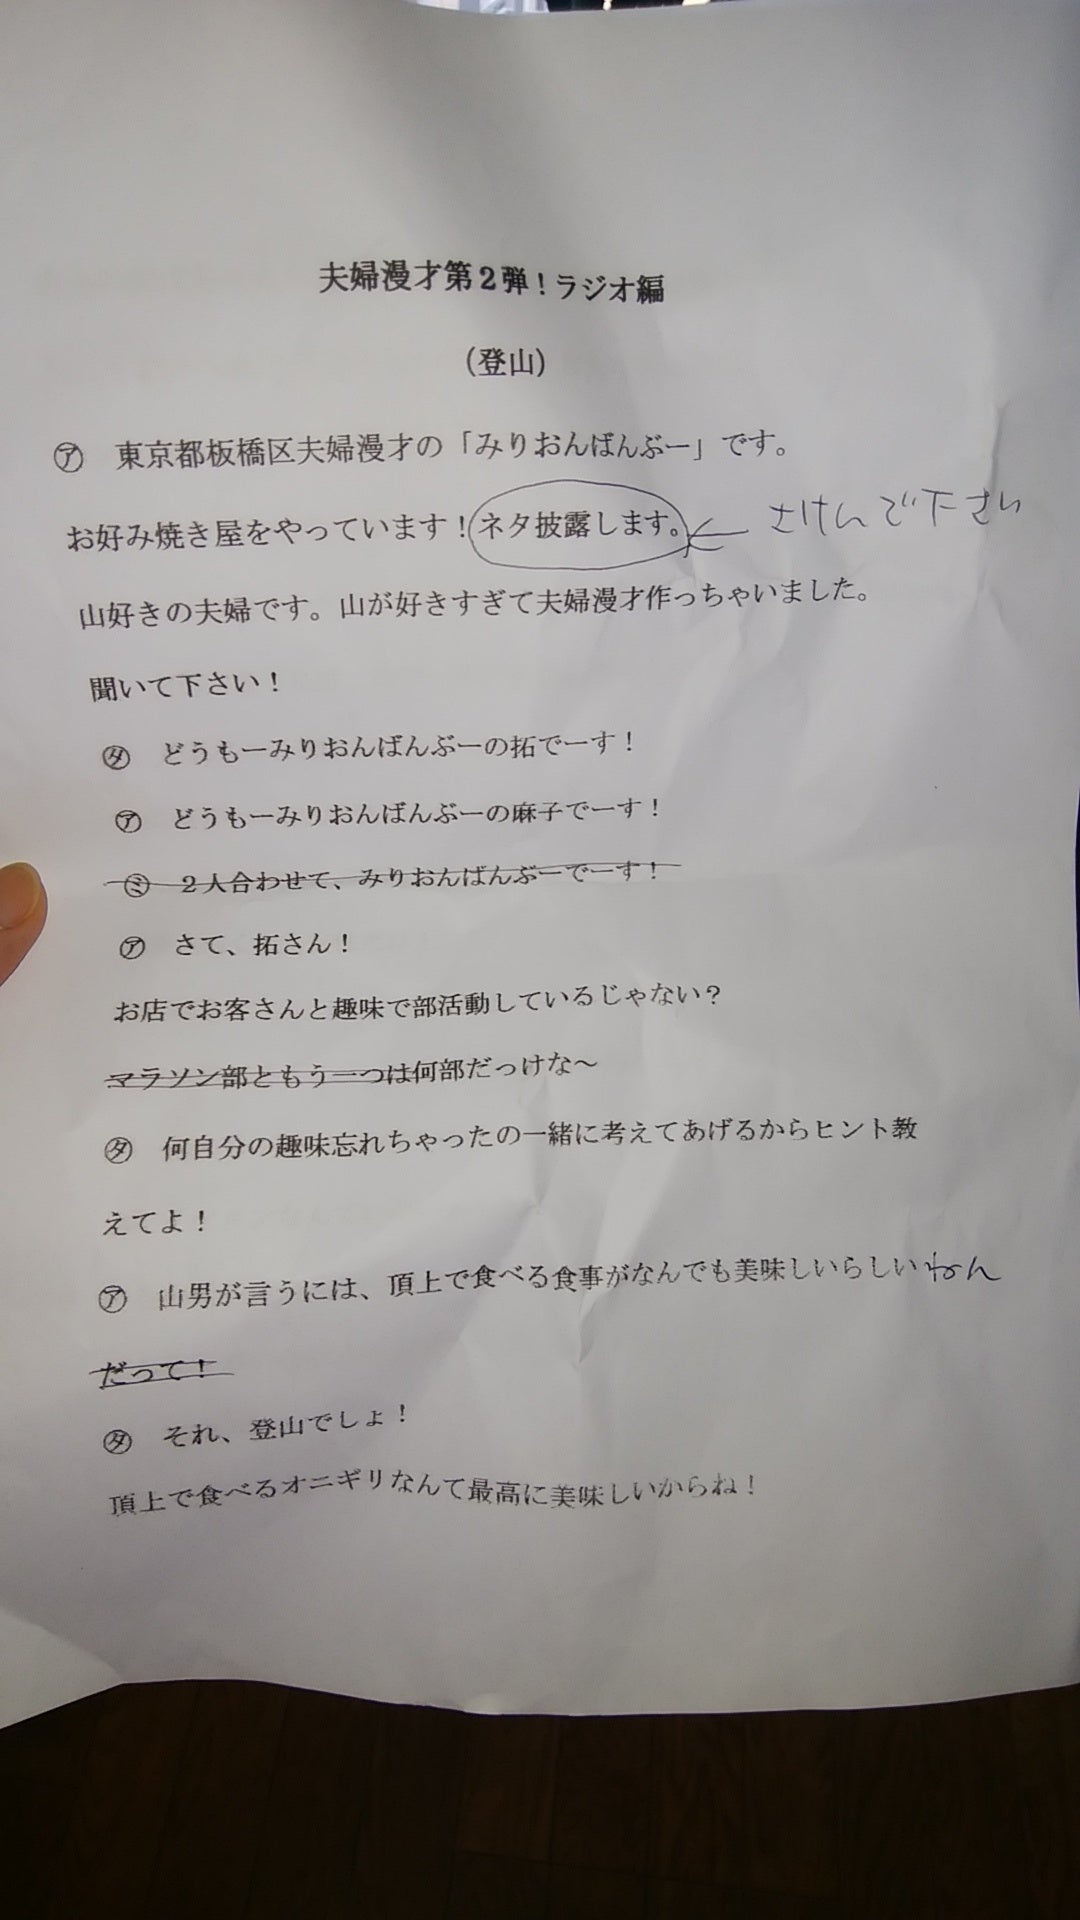 夫婦漫才第2弾！ラジオ編
（登山）
㋐ 東京都板橋区夫婦漫才の「みりおんばんぶー」です。
お好み焼き屋をやっています！ネタ披露します。← さけんで下さい
山好きの夫婦です。山が好きすぎて夫婦漫才作っちゃいました。
聞いて下さい！
㋟ どうもーみりおんばんぶーの拓でーす！
㋐ どうもーみりおんばんぶーの麻子でーす！
㋯ 2人合わせて、みりおんばんぶーでーす！
㋐ さて、拓さん！
お店でお客さんと趣味で部活動しているじゃない？
マラソン部ともう一つは何部だっけな～
㋟ 何自分の趣味忘れちゃったの一緒に考えてあげるからヒント教
えてよ！
㋐ 山男が言うには、頂上で食べる食事がなんでも美味しいらしいねん
だって！
㋟ それ、登山でしょ！
頂上で食べるオニギリなんて最高に美味しいからね！